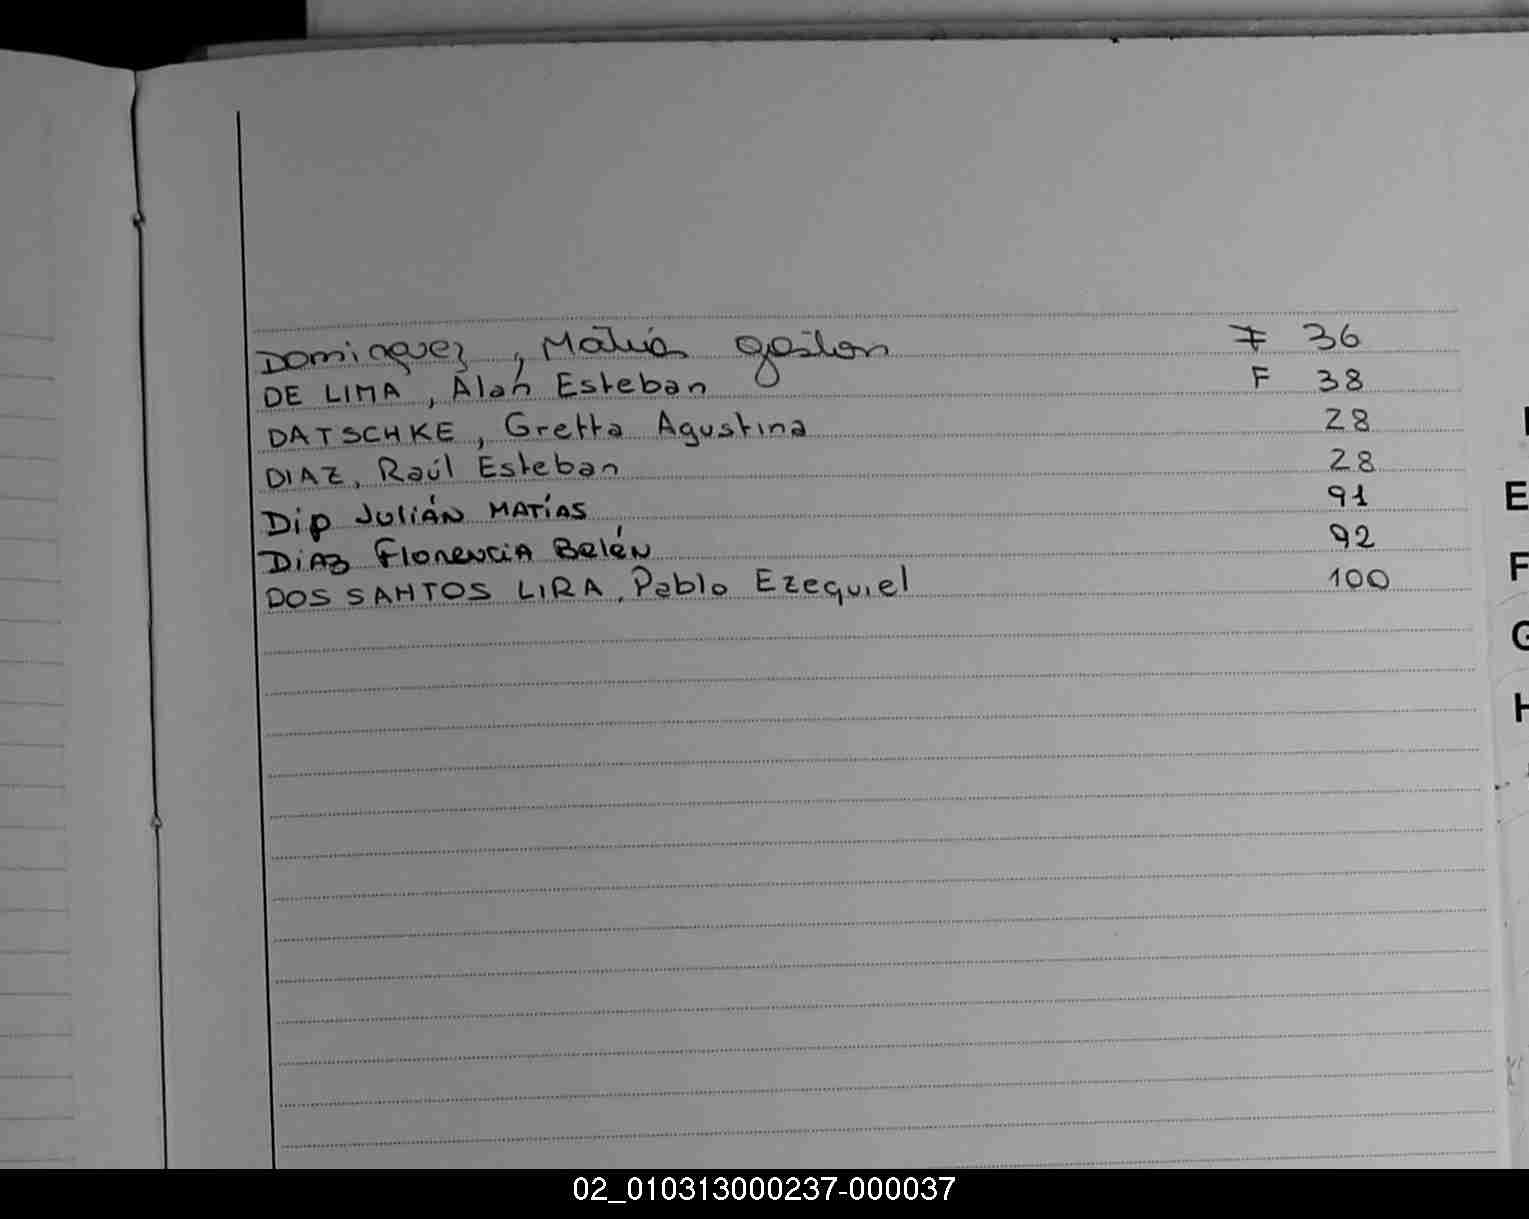 Dominguez, Matias gaston F 36
DE LIMA, Alan Esteban F 38
DATSCHKE, Gretta Agustina 28
DIAZ, Raúl Esteban 28
Dip JuliÁN MATíAS 91
DiAz FlorenciA Belén 92
DOS SANTOS LIRA, Pablo Ezequiel 100
E
F
G
H
02_010313000237-000037